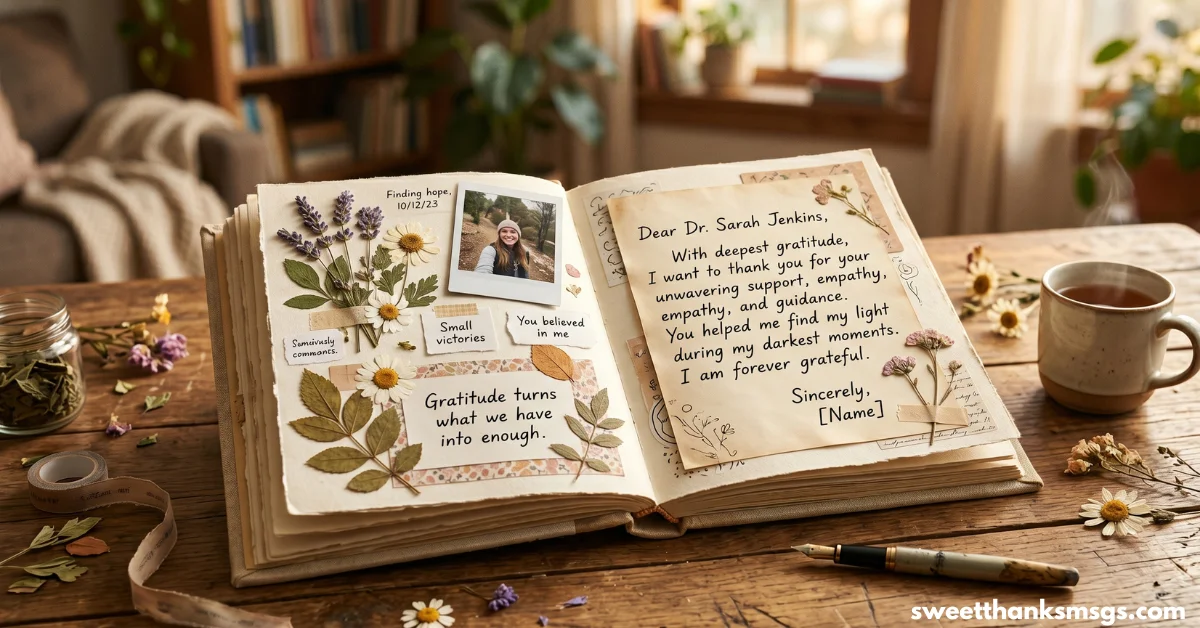 Finding hope,
10/12/23
Small
victories
You believed
in me
Somuivusly
commants.
Gratitude turns
what we have
into enough.
Dear Dr. Sarah Jenkins,
With deepest gratitude,
I want to thank you for your
unwavering support, empathy,
empathy, and guidance.
You helped me find my light
during my darkest moments.
I am forever grateful.
Sincerely,
[Name]
sweetthanksmsgs.com